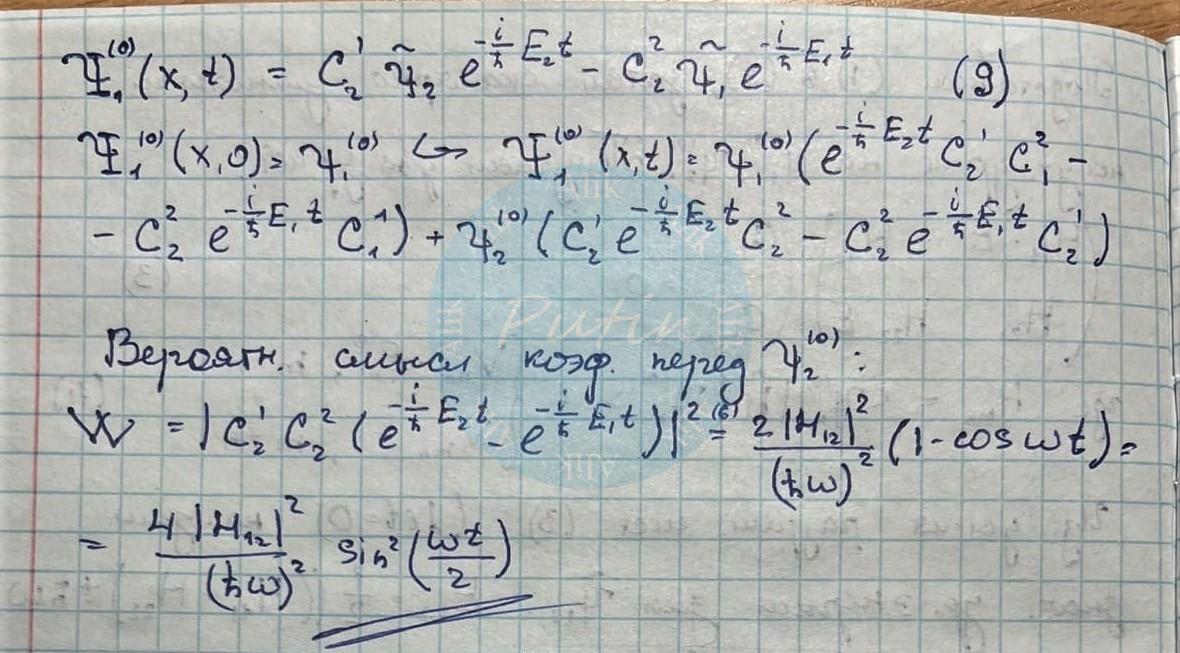 Ψ₁⁽⁰⁾(x,t) = C₂¹ ψ̃₂ e^{-i/ħ E₂t} - C₂² ψ̃₁ e^{-i/ħ E₁t} (9)
Ψ₁⁽⁰⁾(x,0) = ψ₁⁽⁰⁾ ↪ Ψ₁⁽⁰⁾(x,t) = ψ₁⁽⁰⁾(e^{-i/ħ E₂t} C₂¹ C₁² -
- C₂² e^{-i/ħ E₁t} C₁¹) + ψ₂⁽⁰⁾(C₂¹ e^{-i/ħ E₂t} C₂² - C₂² e^{-i/ħ E₁t} C₂¹)
Вероятн. смысл коэф. перед ψ₂⁽⁰⁾:
W = |C₂¹ C₂² (e^{-i/ħ E₂t} - e^{-i/ħ E₁t})|² =⁽⁶⁾ 2|H₁₂|²/(ħω)² (1-cos ωt) =
= 4|H₁₂|²/(ħω)² sin²(ωt/2)
Putin